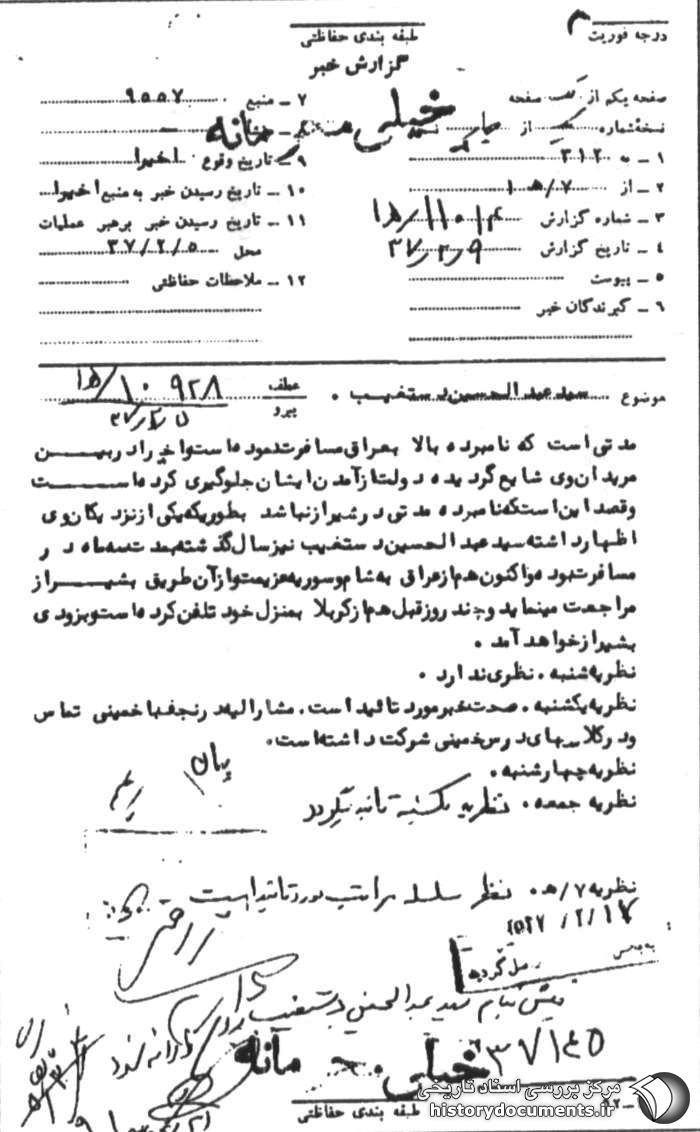 درجه فوریت
طبقه بندی حفاظتی
گزارش خبر
خیلی محرمانه
صفحه یکم از یک صفحه
نسخه شماره یک از یک نسخه
۱ – به ۳۱۲
۲ – از ۷/ه‍ ۱
۳ – شماره گزارش
۴ – تاریخ گزارش ۳۷/۲/۹
۵ – پیوست
۶ – گیرندگان خبر
۷ – منبع ۹۵۵۷
۹ – تاریخ وقوع اخیرا
۱۰ – تاریخ رسیدن خبر به منبع اخیرا
۱۱ – تاریخ رسیدن خبر برهبر عملیات
محل ۳۷/۲/۵
۱۲ – ملاحظات حفاظتی
موضوع سید عبدالحسین دستغیب .
عطف
پیرو
۱۰۹۲۸
مدتی است که نامبرده بالا بعراق مسافرت نموده است و اخیرا در بین
مریدان وی شایع گردیده دولت از آمدن ایشان جلوگیری کرده است
و قصد این است که نامبرده مدتی در شیراز نباشد بطوریکه یکی از نزدیکان وی
اظهار داشته سید عبدالحسین دستغیب نیز سال گذشته بمدت سه ماه در
مسافرت بوده و اکنون هم از عراق به شام و سوریه عزیمت و از آن طریق بشیراز
مراجعت مینماید و چند روز قبل هم از کربلا بمنزل خود تلفن کرده است و بزودی
بشیراز خواهد آمد .
نظریه شنبه . نظری ندارد .
نظریه یکشنبه . صحت خبر مورد تائید است . مشارالیه در نجف با خمینی تماس
و در کلاسهای درس خمینی شرکت داشته است .
نظریه چهارشنبه .
نظریه جمعه . نظریه یکشنبه تائید میگردد
نظریه ۷/ه‍ . نظر سلسله مراتب مورد تائید است
۲۵۳۷/۲/۱۷
به بخش
رمل گردید
سید عبدالحسین دستغیب
۳۷۱۴۵
خیلی محرمانه
طبقه بندی حفاظتی
مرکز بررسی اسناد تاریخی
historydocuments.ir